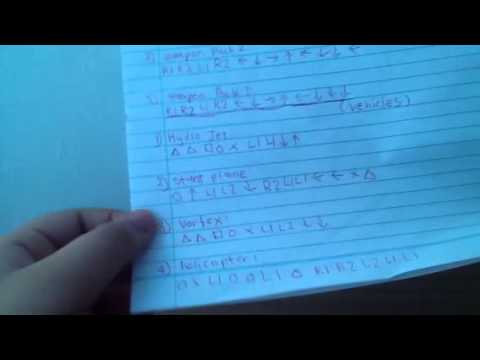 2) weapon Pack 2
R1 R2 L1 R2 ← ↓ → ↑ ← ↓ ↓ ←
R1 R2 L1 R2 ← ↓ → ↑ ← ↓ ↓ ↓
(vehicles)
1) Hydro Jet
△ △ □ O × L1 L1 ↓ ↑
2) stunt plane
O ↑ L1 L2 ↓ R2 L1 L1 ← ← × △
3) Vortex:
△ △ □ O × L1 L2 ↓ ↓
4) helicopter:
O × L1 O O L1 O R1 R2 L2 L1 L1